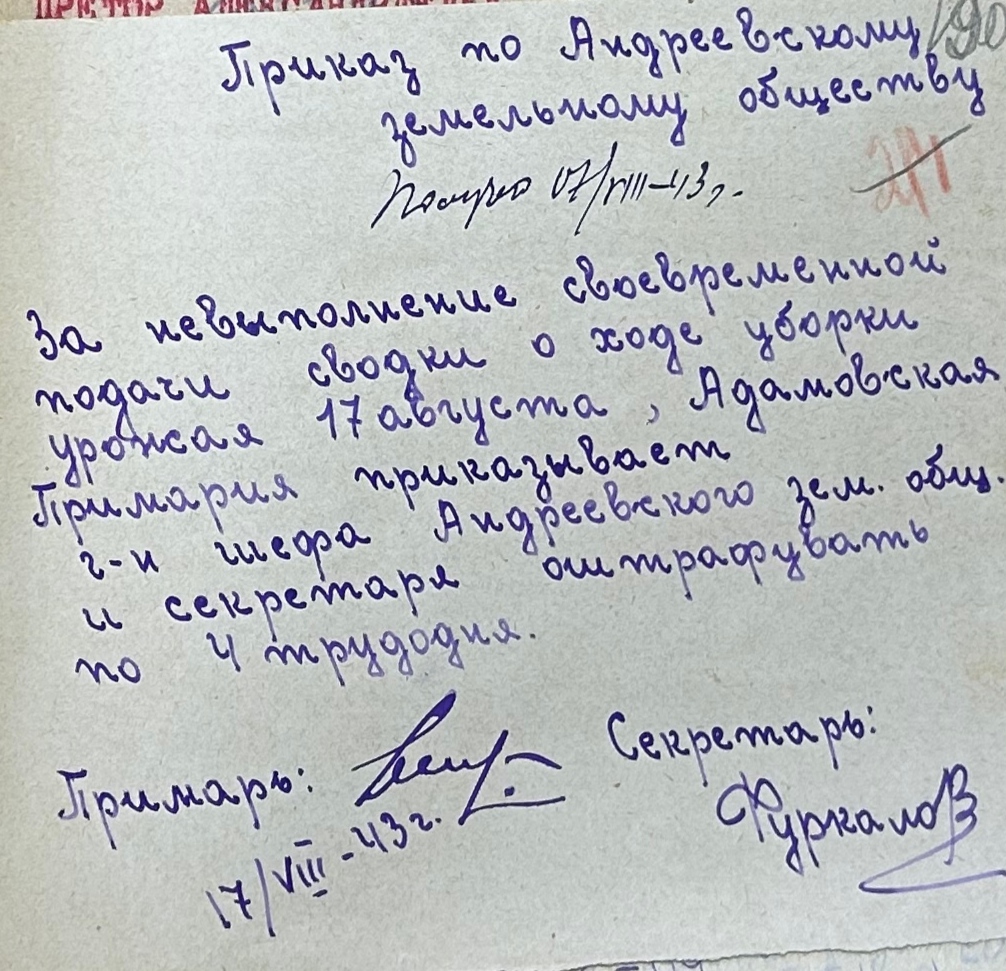 Приказ по Андреевскому
земельному обществу
190
Получено 17/VIII-43 г.
За невыполнение своевременной
подачи сводки о ходе уборки
урожая 17 августа, Адамовская
Примария приказывает
г-н шефа Андреевского зем. общ.
и секретаря оштрафувать
по 4 трудодня.
Примарь:
Секретарь:
17/VIII-43 г.
Фуркалов